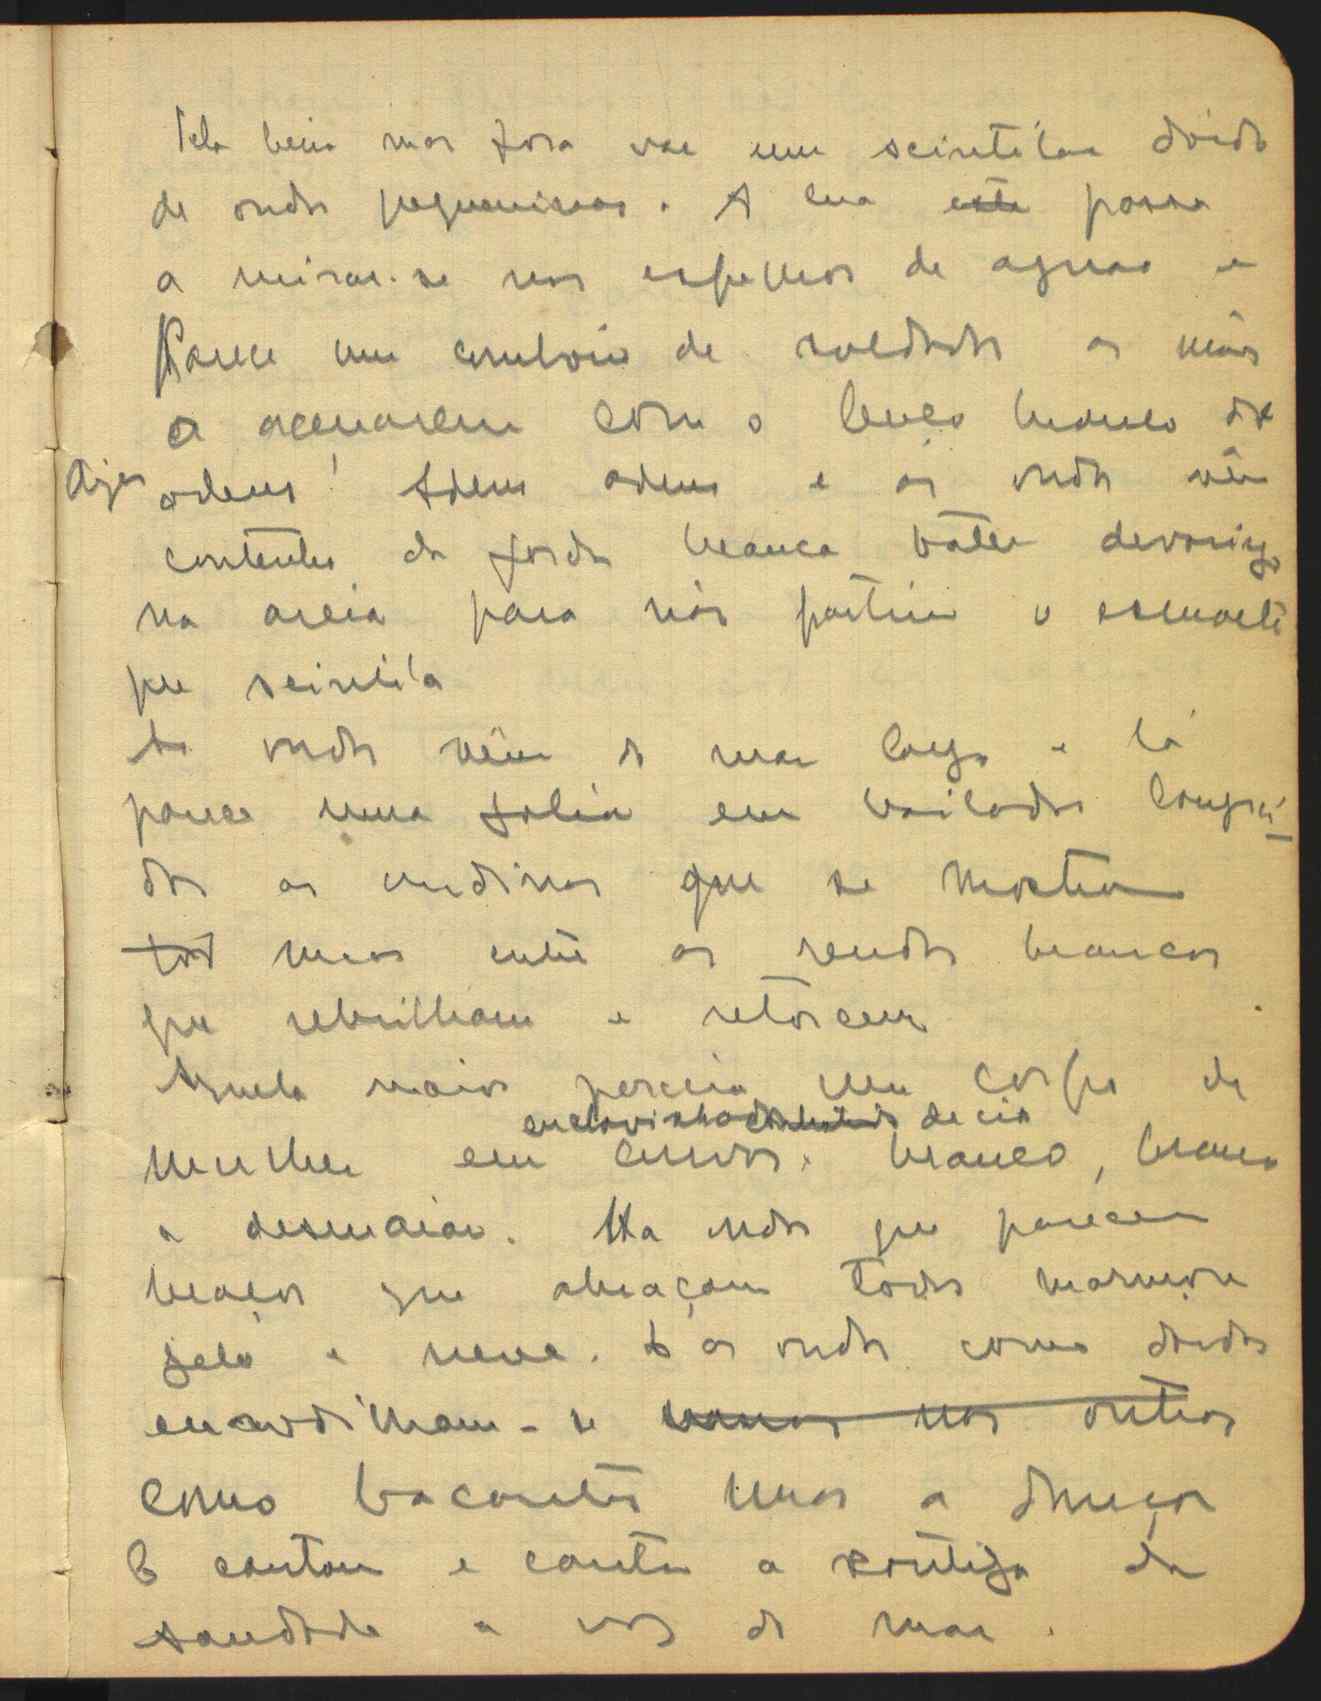 Pela beira mar fora vae um scintilar doido
de ondas pequeninas. A lua está passa
a mirar-se nos espelhos de aguas e
Parece um comboio de soldados as mãos
a acenarem com o lenço branco do
adeus! Adeus adeus e as ondas vêm
contentes da farda branca bater devarinho
na areia para não partir o esmalte
que scintila
As ondas vêm do mar largo e lá
parece uma folia em bailados
das as ondinas que se mostram
tod nuas entre as rendas brancas
que rebrilham e retorcem
Aquela maior parecia um corpo de
enclavinhado decia
mulher em curvas. branco, branco
a desmaiar. Ha ondas que parecem
braços que abraçam todos marmore
gelo e neve. E as ondas como doidas
enrodilham-se umas nas outras
como bacantes nuas a dançar
E cantam e cantam a cantiga da
saudade a voz do mar.